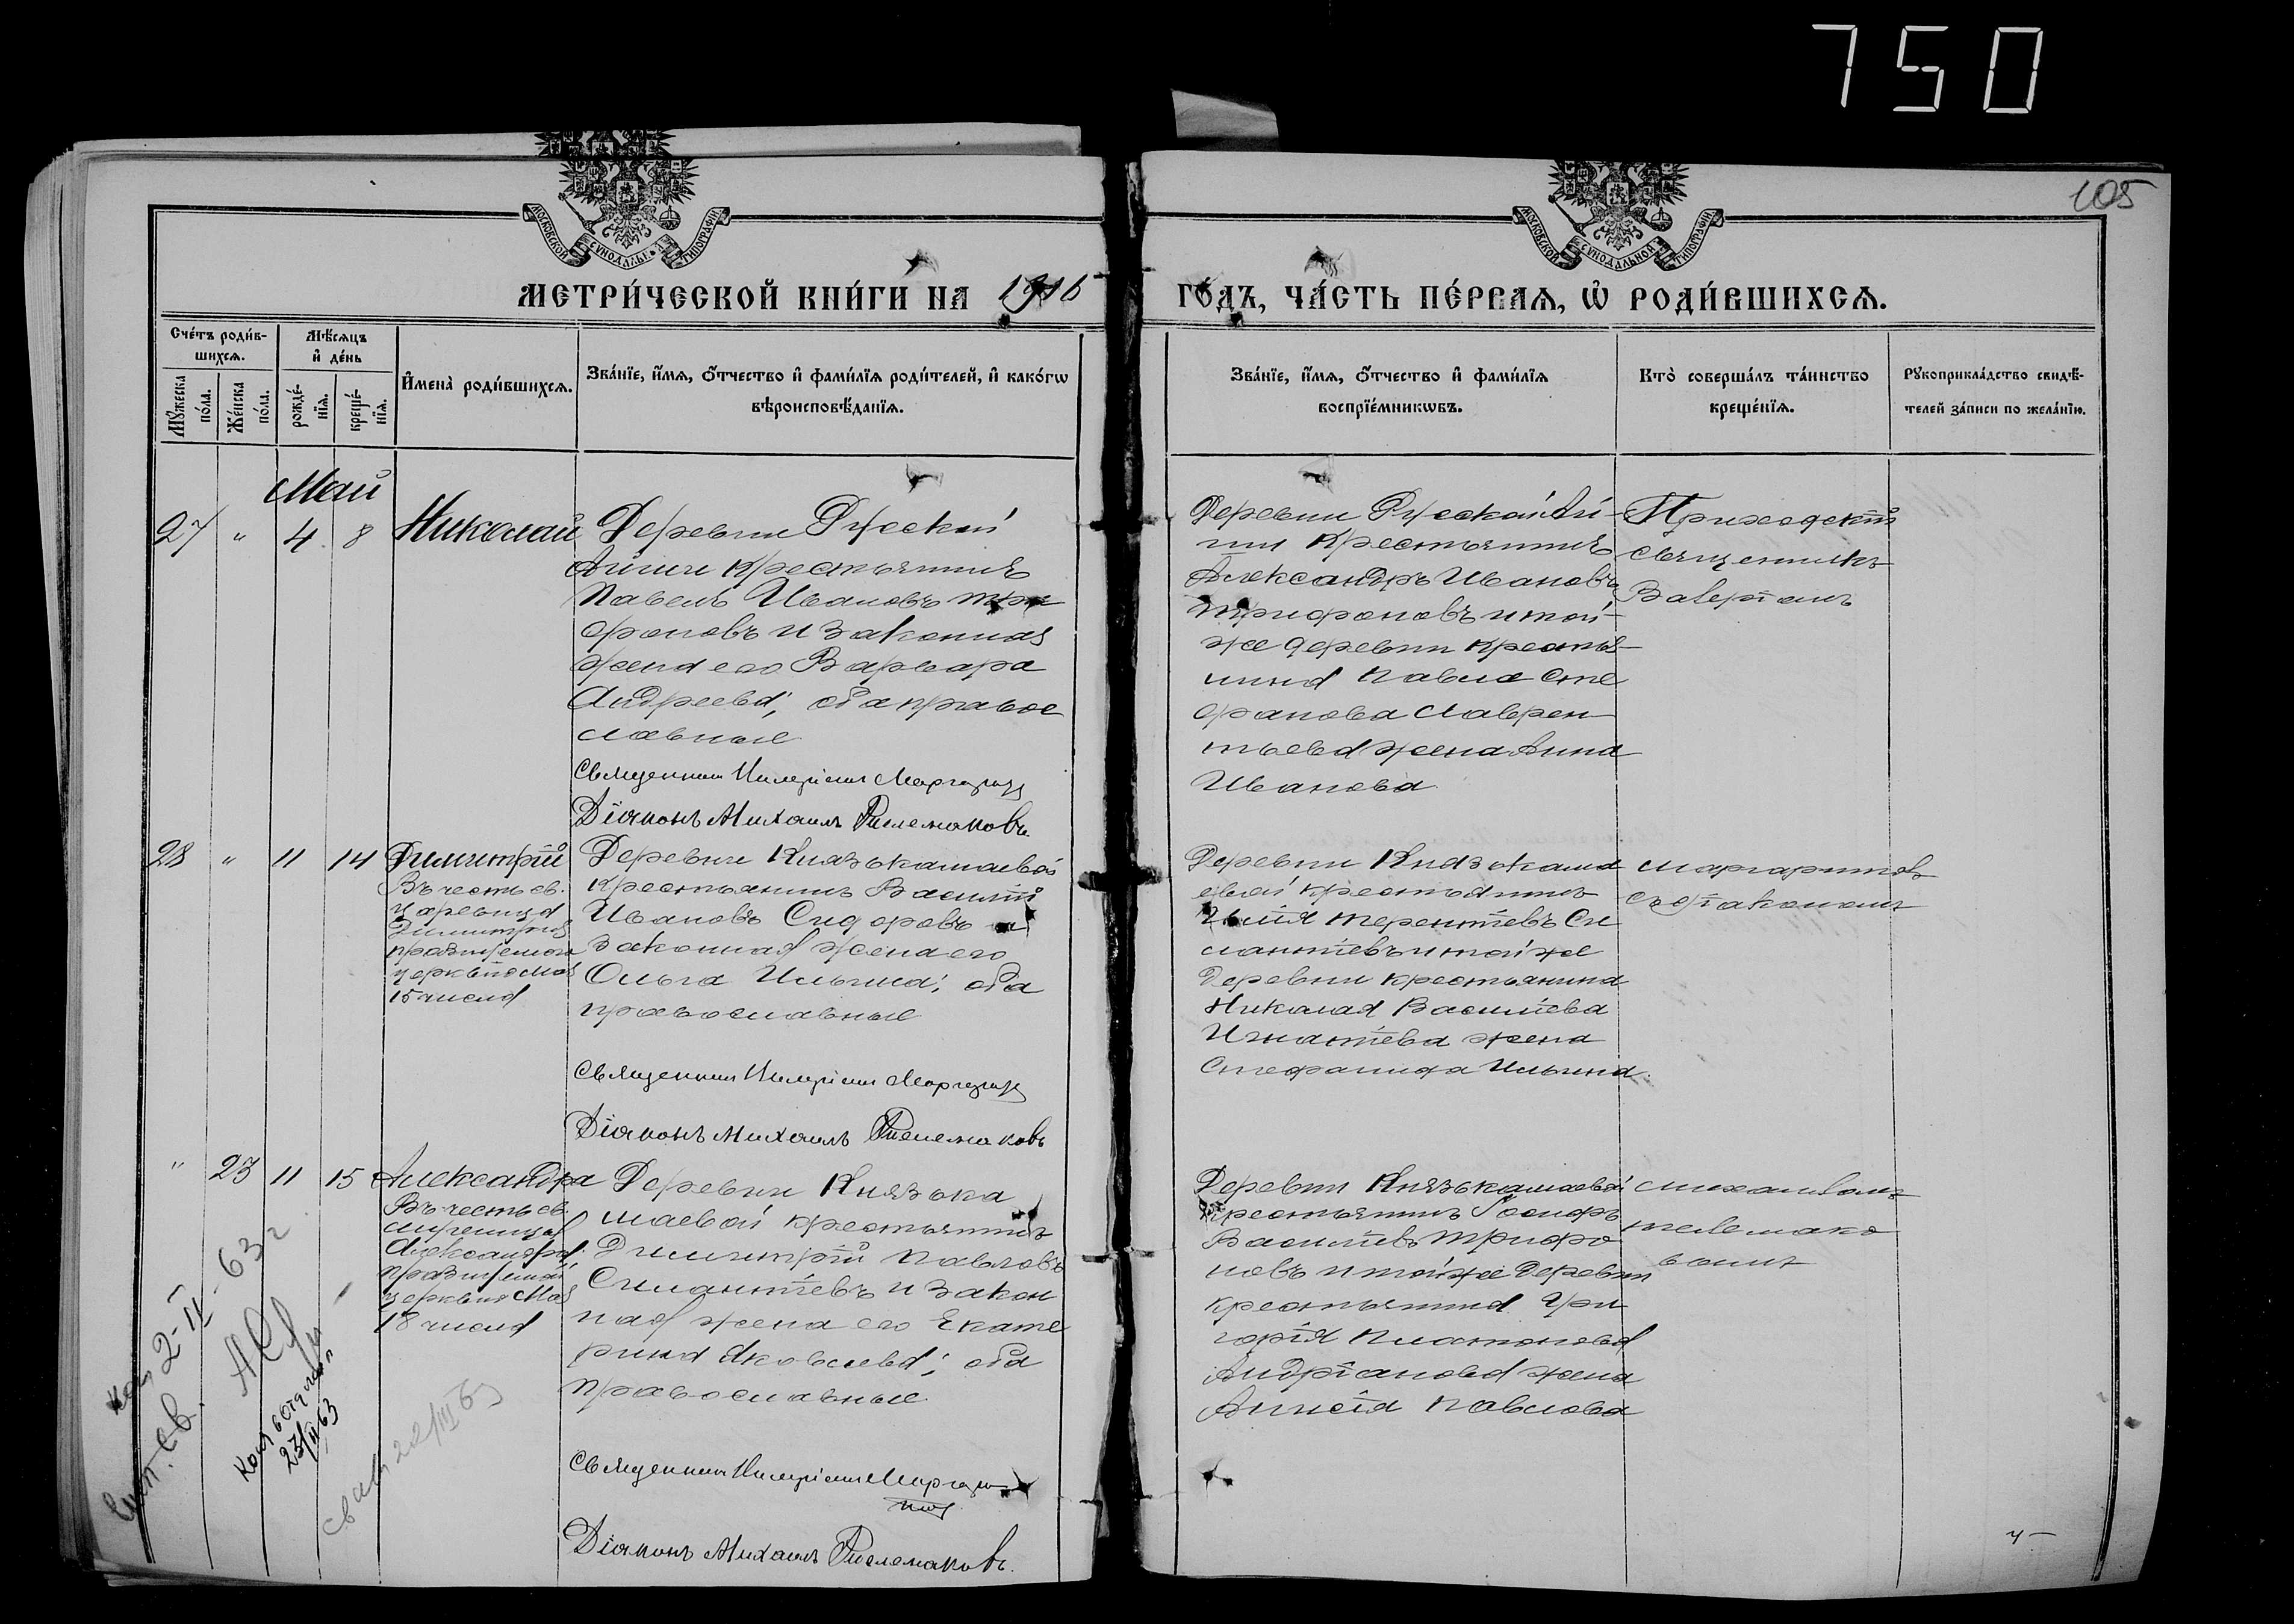 750
105
МОСКОВСКОЙ СѴНОДАЛЬНОЙ ТИПОГРАФІИ
МОСКОВСКОЙ СѴНОДАЛЬНОЙ ТИПОГРАФІИ
МЕТРИ́ЧЕСКОЙ КНИ́ГИ НА 1916
ГО́ДЪ, ЧА́СТЬ ПЕ́РВАЯ, Ѡ҆ РОДИ́ВШИХСЯ.
Сче́тъ роди́в-
шихся.
Мѣ́сяцъ
и҆ де́нь
Мꙋ́жеска
по́ла.
Же́нска
по́ла.
рожде́-
нїѧ.
креще́-
нїѧ.
И҆мена̀ роди́вшихся.
Зва́нїе, и҆́мя, ѻ҆́тчество и҆ фами́лїя роди́телей, и҆ како́гѡ
вѣроисповѣ́данїя.
Зва́нїе, и҆́мя, ѻ҆́тчество и҆ фами́лїя
воспрїе́мникѡвъ.
Кто̀ соверша́лъ та́инство
креще́нїя.
Рꙋкоприкла́дство свидѣ́-
телей за́писи по жела́нїю.
Май
27 " 4 8 Николай
Деревни Русской
Айши крестьянинъ
Павелъ Ивановъ Три
фоновъ и законная
жена его Варвара
Андреева; оба право
славные
Священникъ Валеріанъ
Діаконъ Михаилъ Телемаковъ.
Деревни Русской Ай-
ши крестьянинъ
Александръ Ивановъ
Трифоновъ и той-
же деревни крестья-
нина Павла Сте
фанова Лаврен-
тьева жена Анна
Иванова
Приходскій
священникъ
Валеріанъ
28 " 11 14 Димитрій
Въ честь св.
царевича
Димитрія
празднуемаго
церковію Мая
15 числа
Деревни Князькамаевой
крестьянинъ Василій
Ивановъ Сидоровъ и
законная жена его
Ольга Ильина; оба
православные
Священникъ Валеріанъ
Діаконъ Михаилъ Телемаковъ
Деревни Князькама
евой крестьянинъ
Илія Терентіевъ Си
лантіевъ и той же
деревни крестьянина
Николая Василіева
Игнатіева жена
Стефанида Ильина.
Маргаритовъ
съ діакономъ
" 23 11 15 Александра
Въ честь св.
мученицы
Александры,
празднуемой
церковію Мая
18 числа
Деревни Князька
маевой крестьянинъ
Димитрій Павловъ
Силантіевъ и закон
ная жена его Екате
рина Яковлева; оба
православные
Священникъ Валеріанъ
Діаконъ Михаилъ Телемаковъ.
Деревни Князькамаевой
крестьянинъ Іосифъ
Василіевъ Трифо
новъ и той же деревни
крестьянина Гри
горія Платонова
Андріанова жена
Анисія Павлова
Михаиломъ
Телемако
вымъ
2-II-63 г
23/II 63
22/III 63